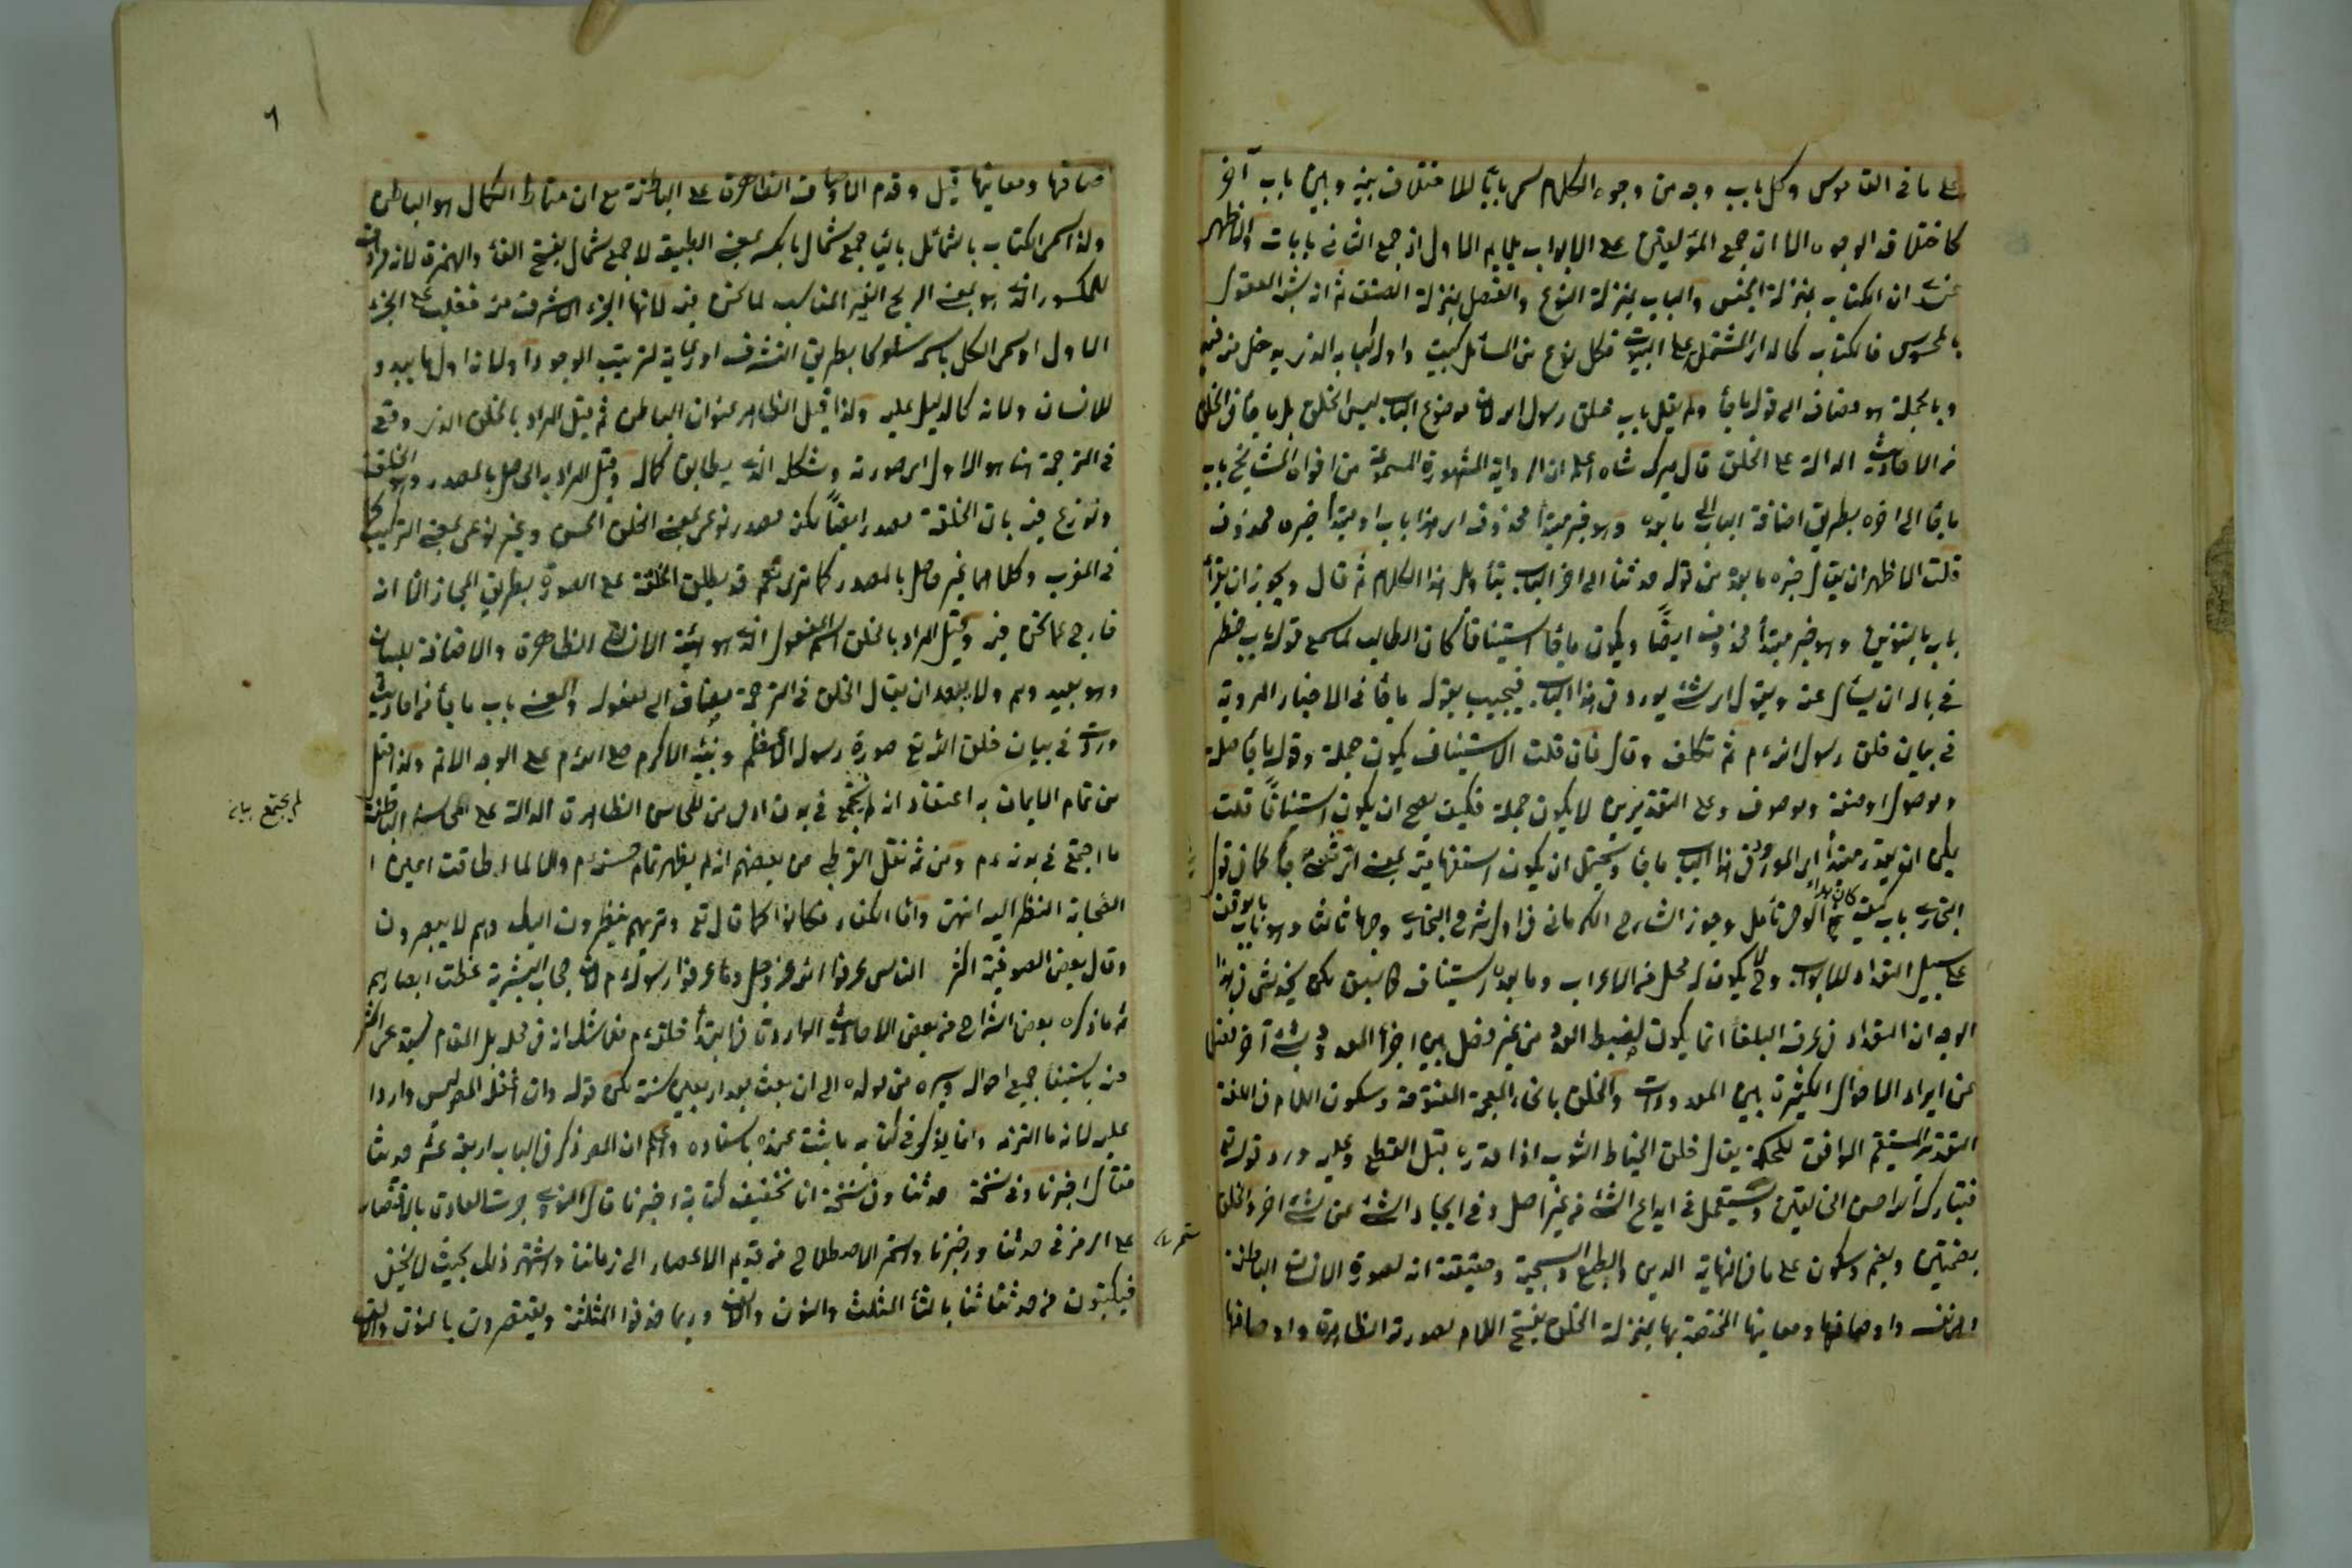 على ما في القاموس وكل باب وجه من وجوه الكلام سمى بابا للاختلاف بينه وبين باب آخر
كاختلاف الوجوه الا ان جمع المؤلفين على الابواب يلايم الاول اذ جمع الثاني بابات والاظهر
عندى ان الكتاب بمنزلة الجنس والباب بمنزلة النوع والفصل بمنزلة الصنف ثم انه شبه المعقول
بالمحسوس فالكتاب كالدار المشتمل على البيوت فكل نوع من المسائل كبيت واوله كبابه الذى يدخل منه فيه
وبالجملة هو مضاف الى قوله ما جأ ولم يقل باب خلق رسول الله لان موضوع الباب ليس الخلق بل ما جأ في الخلق
من الاحاديث الدالة على الخلق قال ميرك شاه اعلم ان الرواية المشهورة المسموعة من افواه المشايخ باب
ما جأ الى اخره بطريق اضافة الباب الى ما بعده وهو خبر مبتدأ محذوف اى هذا باب او مبتدأ خبره محذوف
قلت الاظهر ان يقال خبره ما بعده من قوله حدثنا الى اخر الباب بتأويل هذا الكلام ثم قال ويجوز ان يقرأ
باب بالتنوين وهو خبر مبتدأ محذوف ايضا ويكون ما جأ استينافا كان الطالب لما سمع قوله باب خطر
في باله ان يسأل عنه ويقول اى شئ يورد في هذا الباب فيجيب بقوله ما جأ في الاخبار المروية
في بيان خلق رسول الله م ثم تكلف وقال فان قلت الاستيناف يكون جملة وقوله ما جأ صلة
وموصول او صفة وموصوف وعلى التقديرين لا يكون جملة فكيف يصح ان يكون استينافا قلت
يمكن ان يقدر مبتدأ اى المورود في هذا الباب ما جأ ويحتمل ان يكون استفهامية بمعنى اى شئ جأ كما في قول
البخارى باب كيف كان بدأ الوحى تأمل وجوز الشارح الكرمانى في اول شرح البخارى وجها ثالثا وهو باب بالوقف
على سبيل التعداد للابواب وح لا يكون له محل من الاعراب وما بعده استيناف كما سبق لكن يخدش في هذا
الوجه ان التعداد في عرف البلغأ انما يكون لضبط العدد من غير فصل بين اجزأ المعدود بشئ آخر فضلا
عن ايراد الاحوال الكثيرة بين المعدودات والخلق بالخاء المعجمة المفتوحة وسكون اللام في اللغة
التقدير المستقيم الموافق للحكمة يقال خلق الخياط الثوب اذا قدره قبل القطع وعليه ورد قوله تع
فتبارك الله احسن الخالقين ويستعمل في ابداع الشئ من غير اصل وفي ايجاد الشئ عن شئ آخر والخلق
بضمتين وبضم وسكون على ما في النهاية الدين والطبع والسجية وحقيقته انه لصورة الانسان الباطنة
وهى نفسه واوصافها ومعانيها المختصة بها بمنزلة الخلق بفتح اللام لصورته الظاهرة واوصافها
صافها ومعانيها قيل وقدم الاوصاف الظاهرة على الباطنة مع ان مناط الكمال هو الباطن
ولذا سمى الكتاب بالشمائل باليأ جمع شمال بالكسر بمعنى الطبيعة لا جمع شمأل بفتح الفأ والهمزة لانه مرادف
للمكسور الذى هو بمعنى الريح الغير المناسب لما نحن فيه لانها الجزء الاشرف منه فغلب على الجزء
الاول او سمى الكل باسمه سلوكا بطريق الشرف او رعاية لترتيب الوجود اولا نه اول ما يبدو
للانسان ولانه كالدليل عليه ولذا قيل الظاهر عنوان الباطن ثم قيل المراد بالخلق الذى وقع
في الترجمة هنا هو الاول اى صورته وشكله الذى يطابق كماله وقيل المراد به الحاصل بالمصدر وهو الخلقة
ونوزع فيه بان الخلقة مصدر ايضا لكنه مصدر نوعى بمعنى الخلق الحسن وغير نوعى بمعنى التركيب كما
في المغرب وكلاهما غير حاصل بالمصدر كما ترى نعم قد يطلق الخلقة على الصورة بطريق المجاز الا انه
خارج عما نحن فيه وقيل المراد بالخلق اسم المفعول الذى هو هيئة الانسان الظاهرة والاضافة للبيان
وهو بعيد وهم ولا يبعد ان يقال الخلق في الترجمة مضاف الى مفعوله والمعنى باب ما جأ من احاديث
وردت في بيان خلق الله تع صورة رسوله الاعظم ونبيه الاكرم صلى الله م على الوجه الاتم ولذا قيل
من تمام الايمان به اعتقاد انه لم يجتمع في بدن ادمى من المحاسن الظاهرة الدالة على محاسنه الباطنة
ما اجتمع في بدنه م ومن ثم نقل القرطبى عن بعضهم انه لم يظهر تمام حسنه م والا لما طاقت اعين ا
الصحابة النظر اليه انتهى واما الكفار فكانوا كما قال تع وتريهم ينظرون اليك وهم لا يبصرون
وقال بعض الصوفية اكثر الناس عرفوا الله عز وجل وما عرفوا رسوله م لان حجاب البشرية غطت ابصارهم
ثم ما ذكره بعض الشراح من بعض الاحاديث الواردة في ابتدأ خلقه م فلا شك انه في محله بل المقام يستدعى اكثر
منه باستيفأ جميع احواله وسيره من مولده الى ان بعث بعد اربعين سنة لكن قوله وان اغفله المص ليس واردا
عليه لانه ما التزمه وانما يذكر في كتابه ما يثبت عنده باسناده واعلم ان المص ذكر في الباب اربعة عشر حديثا
فقال اخبرنا وفي نسخة حدثنا وفي نسخة انا تخفيف كتابة اخبرنا قال النووى جرت العادة بالاقتصار
على الرمز في حدثنا واخبرنا واستمر الاصطلاح من قديم الاعصار الى زماننا واشتهر ذلك بحيث لا يخفى
فيكتبون من حدثنا ثنا بالثأ المثلث والنون والالف وربما حذفوا المثلثة ويقتصرون بالنون والالف
لم يجتمع بيان
٦